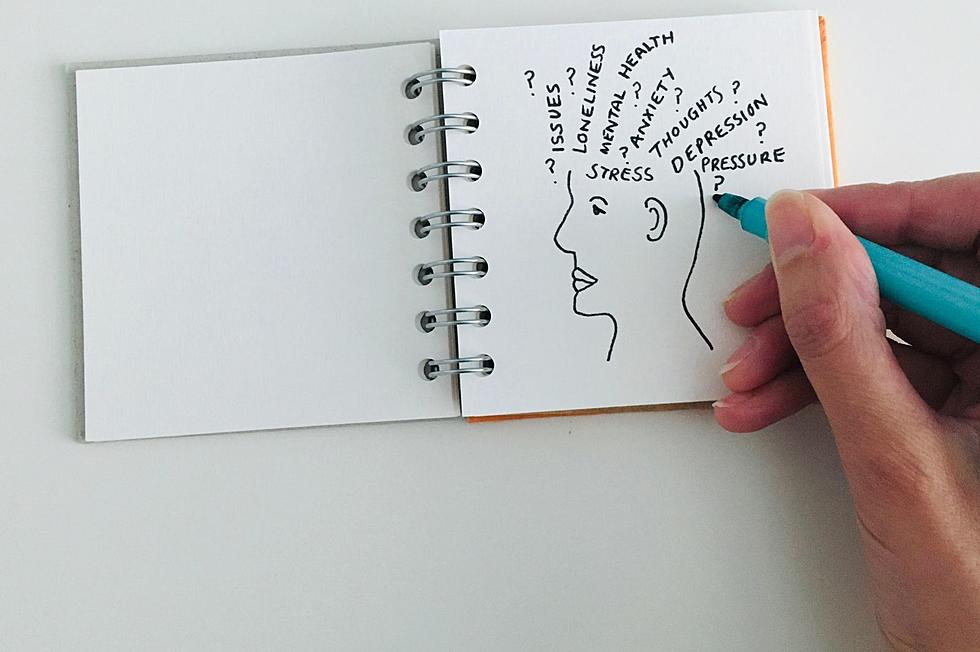 ? ISSUES
? LONELINESS
MENTAL HEALTH
? ANXIETY
? THOUGHTS ?
DEPRESSION
?
? STRESS
PRESSURE
?